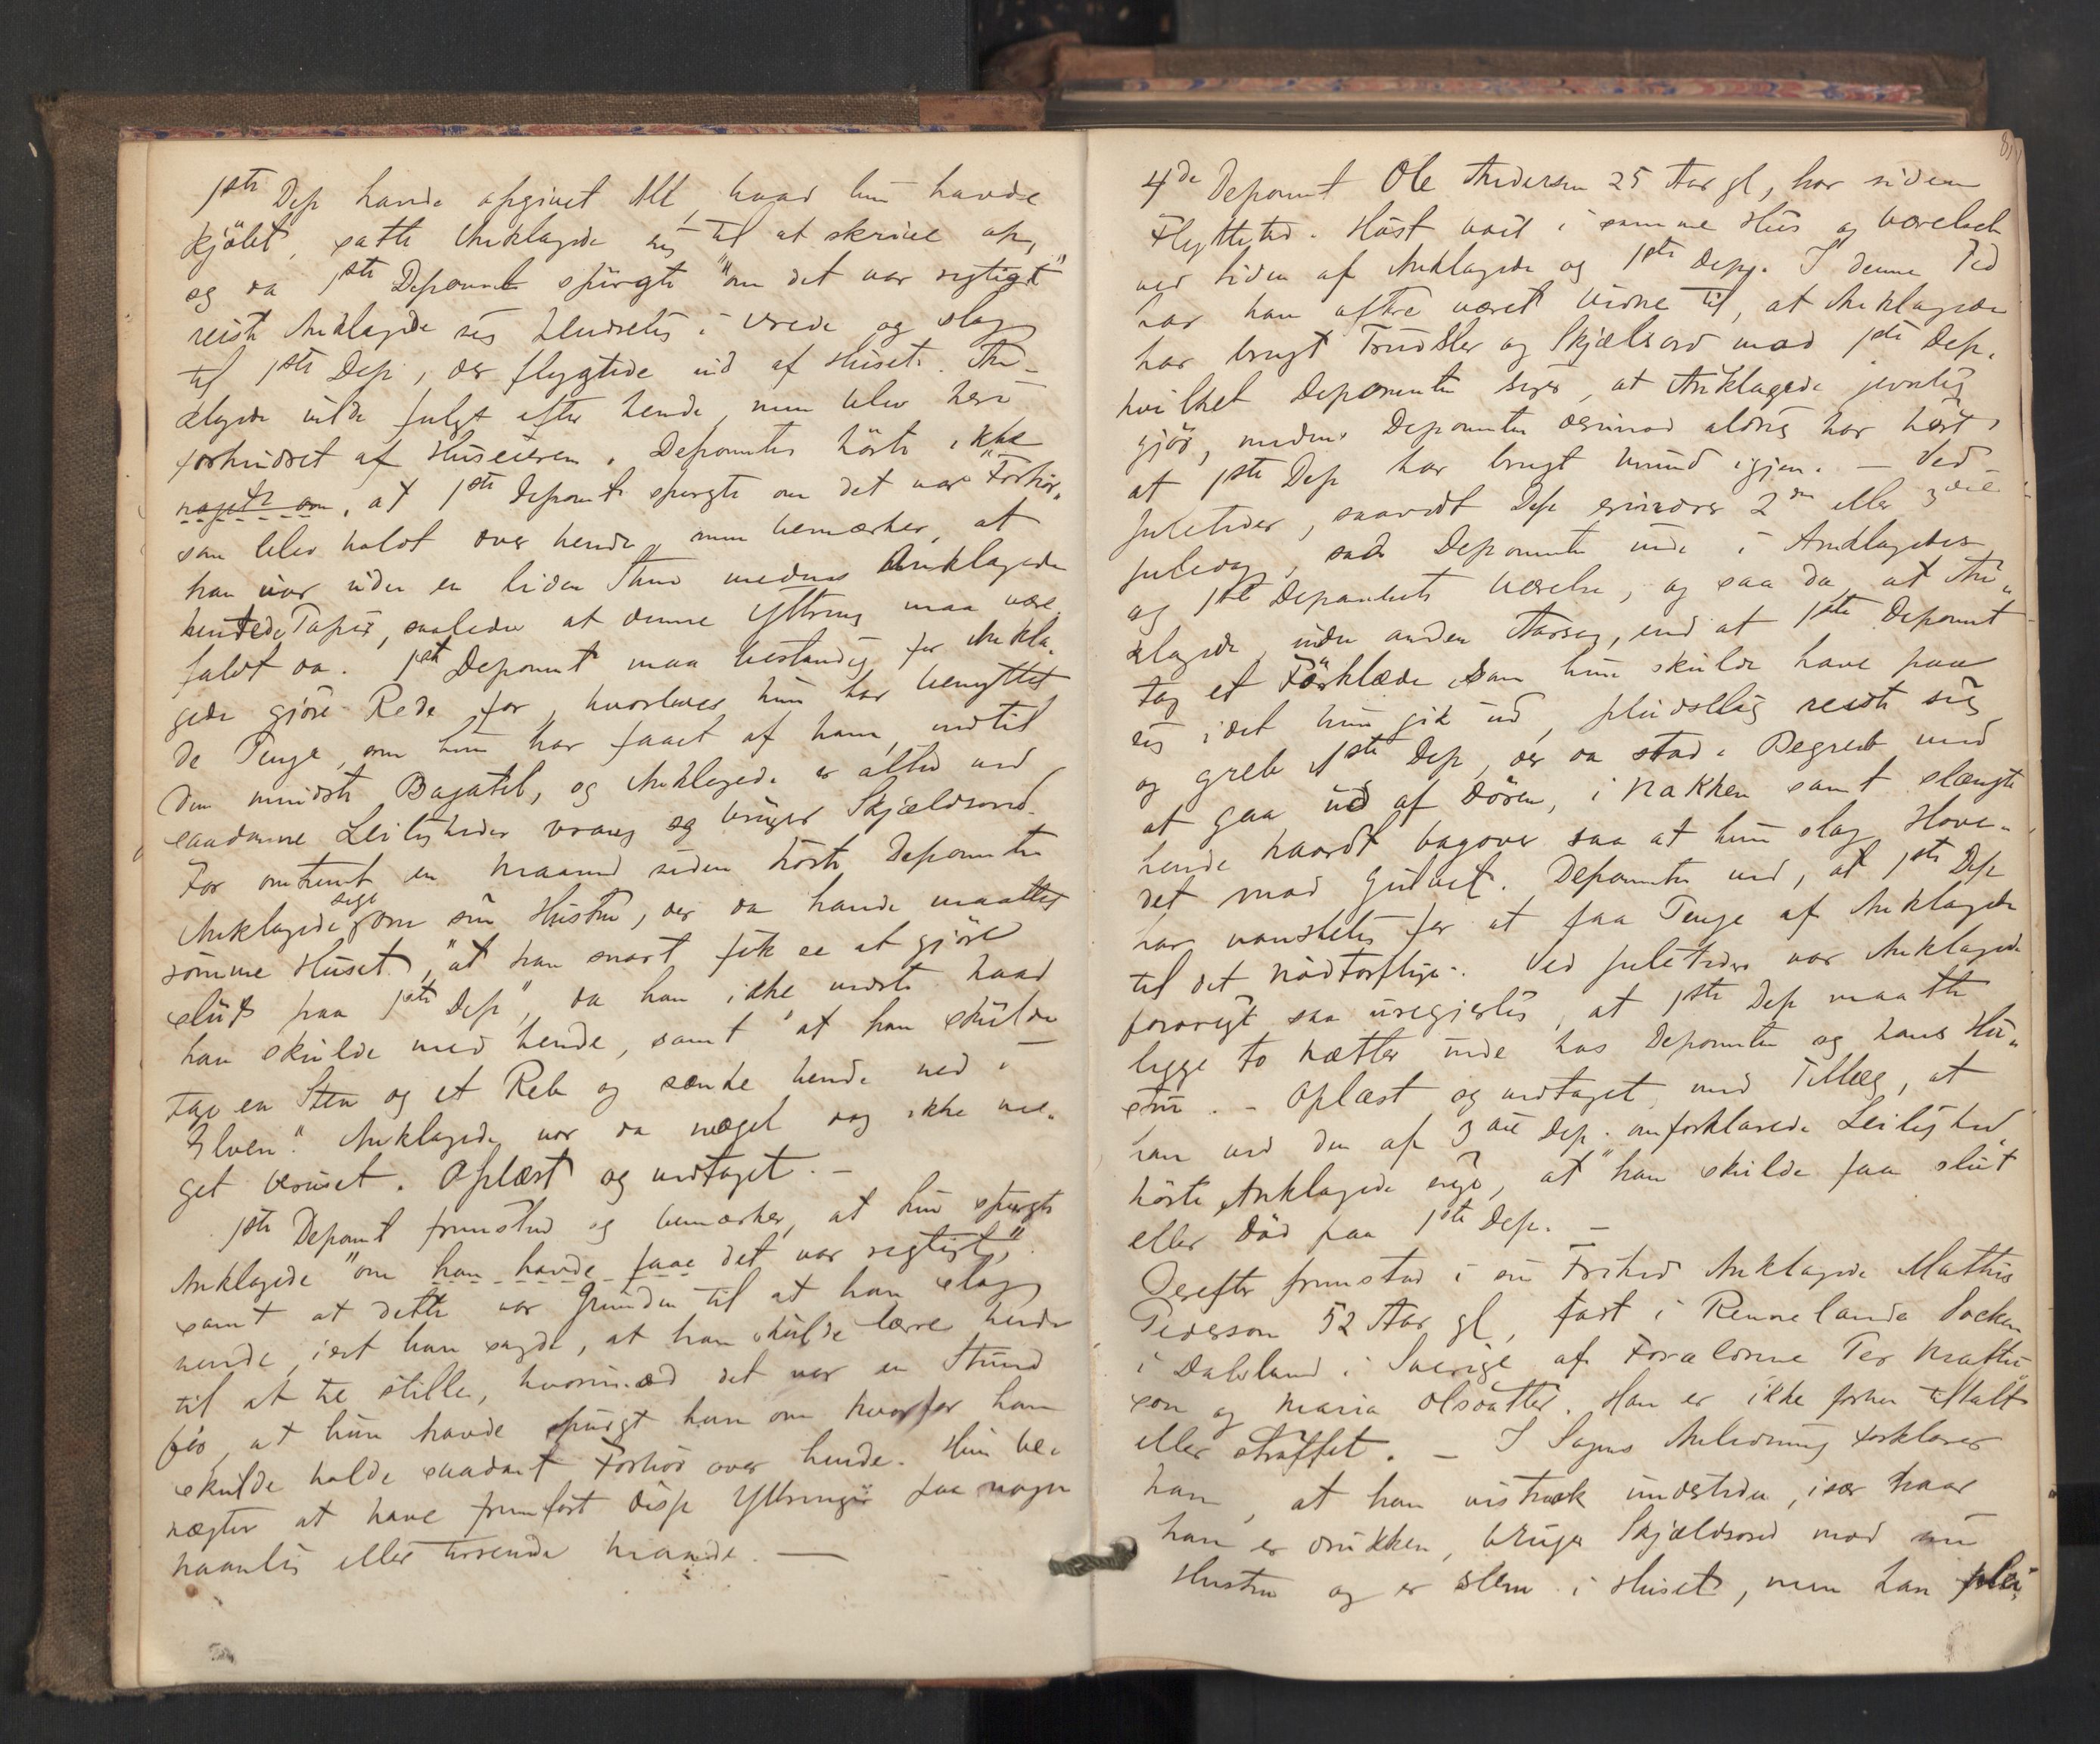 1ste Dep havde opgivet Alt, hvad hun havde
kjøbt, satte Anklagede sig til at skrive op,
og da 1ste Deponent spurgte "om det var rigtigt"
reiste Anklagede sig pludselig i Vrede og slog
til 1ste Dep, der flygtede ud af Huset. An-
klagede vilde fulgt efter hende, men blev heri
forhindret af Huseieren. Deponenten hørte ikke
noget om, at 1ste Deponent spurgte om det var "Forhør"
som blev holdt over hende, men bemærker, at
han var ude en liden Stund medens Anklagede
hentede Papir, saaledes at denne Yttring maa være
faldt da. 1ste Deponent maa bestandig for Ankla-
gede gjøre Rede for, hvorledes hun har benyttet
de Penge, som hun har faaet af ham, indtil
den mindste Bagatel, og Anklagede er altid ved
saadanne Leiligheder vrang og bruger Skjældsord.
For omtrent en Maaned siden hørte Deponenten
Anklagede sige om sin Hustru, der da havde maattet
rømme Huset, "at han snart fik se at gjøre
slut paa 1ste Dep", da han ikke vidste hvad
han skulde med hende, samt "at han skulde
tage en Sten og et Reb og sænke hende ned i
Elven". Anklagede var da noget dog ikke me-
get beruset. Oplæst og vedtaget. –
1ste Deponent fremstod og bemærker, at hun spurgte
Anklagede "om han havde faae det var rigtigt",
samt at dette var Grunden til at han slog
hende, idet han sagde, at han skulde lære hende
til at tie stille, hvorimod det var en Stund
før, at hun havde spurgt ham om hvorfor han
skulde holde saadant Forhør over hende. Hun be-
nægter at have fremført disse Yttringer paa nogen
haanlig eller terrende Maade. —
4de Deponent Ole Andersen 25 Aar gl, har siden
Flyttetid. Høst boet i samme Hus og Værelset
ved Siden af Anklagede og 1ste Dep. I denne Tid
har han oftere været Vidne til, at Anklagede
har brugt Trudsler og Skjældsord mod 1ste Dep,
hvilket Deponenten siger, at Anklagede jevnlig
gjør, medens Deponenten derimod aldrig har hørt,
at 1ste Dep har brugt Mund igjen. – Ved
Juletider, saavidt Dep erindrer 2den eller 3die
Juledag, sad Deponenten inde i Anklagedes
og 1ste Deponents Værelse, og saa da, at An-
klagede uden anden Aarsag, end at 1ste Deponent
tog et Forklæde som hun skulde have paa
sig idet hun gik ud, pludselig reiste sig
og greb 1ste Dep, der da stod i Begreb med
at gaa ud af Døren, i Nakken samt slængte
hende haardt bagover saa at hun slog Hove-
det mod Gulvet. Deponenten ved, at 1ste Dep
har vanskelig for at faa Penge af Anklagede
til det nødtørftige. Ved Juletider var Anklagede
forøvrigt saa uregjerlig, at 1ste Dep maatte
ligge to Nætter inde hos Deponenten og hans Hu-
stru. – Oplæst og vedtaget, med Tillæg, at
han ved den af 3die Dep. omforklarede Leilighed
hørte Anklagede sige, at "han skulde faa slut
eller Død paa 1ste Dep. –
Derefter fremstod i sin Frihed Anklagede Mathis
Pederson 52 Aar gl, født i Rennelanda Socken
i Dalsland i Sverige af Forældrene Per Mathis-
son og Maria Olsdatter. Han er ikke før tiltalt
eller straffet. – I Sagens Anledning forklarer
han, at han vistnok undertiden, især naar
han er drukken, bruger Skjældsord mod sin
Hustru og er slem i Huset, men han plei-